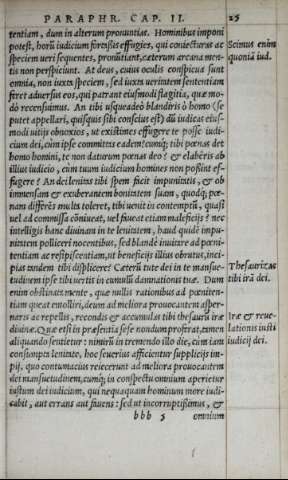 PARAPHR. CAP. II. 25
tentiam, dum in alterum pronuntias. Hominibus imponi
potest, horũ iudicium forensis effugies, qui coniecturas ac
speciem ueri sequentes, pronũtiant, cæterum arcana men-
tis non perspiciunt. At deus, cuius oculis conspicua sunt
omnia, non iuxta speciem, sed iuxta ueritatem sententiam
feret aduersus eos, qui patrant eiusmodi flagitia, quæ mo-
dò recensuimus. An tibi usqueadeò blandiris ô homo (se
putet appellari, quisquis sibi conscius est) dũ iudicas eius-
modi uitijs obnoxios, ut existimes effugere te posse iudi-
cium dei, cùm ipse committis eadem? cumq; tibi pœnas det
homo homini, te non daturum pœnas deo? & elabêris ab
illius iudicio, cùm tuum iudicium homines non possint ef-
fugere? An dei lenitas tibi spem facit impunitatis, & ob
immensam & exuberantem bonitatem suam, quodq; pœ-
nam differês multis toleret, tibi uenit in contemptũ, quasi
uel ad commissa côniueat, uel faueat etiam maleficijs? nec
intelligis hanc diuinam in te lenitatem, haud quidẽ impu-
nitatem polliceri nocentibus, sed blandè inuitare ad pœni-
tentiam ac resipiscentiam, ut beneficijs illius obrutus, inci-
pias tandem tibi displicere? Cæterũ tute dei in te mansue-
tudinem ipse tibi uertis in cumulũ damnationis tuæ. Dum
enim obstinatæ mente, quæ nullis rationibus ad pœniten-
tiam queat emolliri, deum ad meliora prouocantem asper-
naris ac repellis, recondis & accumulas tibi thesaurũ iræ
diuinæ. Quæ etsi in præsentia sese nondum profirat, tamen
aliquando sentietur: nimirũ in tremendo illo die, cùm iam
consumpta lenitate, hoc seuerius afficientur supplicijs im-
pij, quo contumacius reiecerunt ad meliora prouocantem
dei mansuetudinem, cumq; in conspectu omnium aperietur
iustum dei iudicium, qui nequaquam hominum more iudi-
cabit, aut errans aut fauens: sed ut incorruptissimus, &
bbb 5 omnium
Scimus enim
quoniã iud.
Thesaurizas
tibi irã dei.
Iræ & reue-
lationis iusti
iudicij dei.